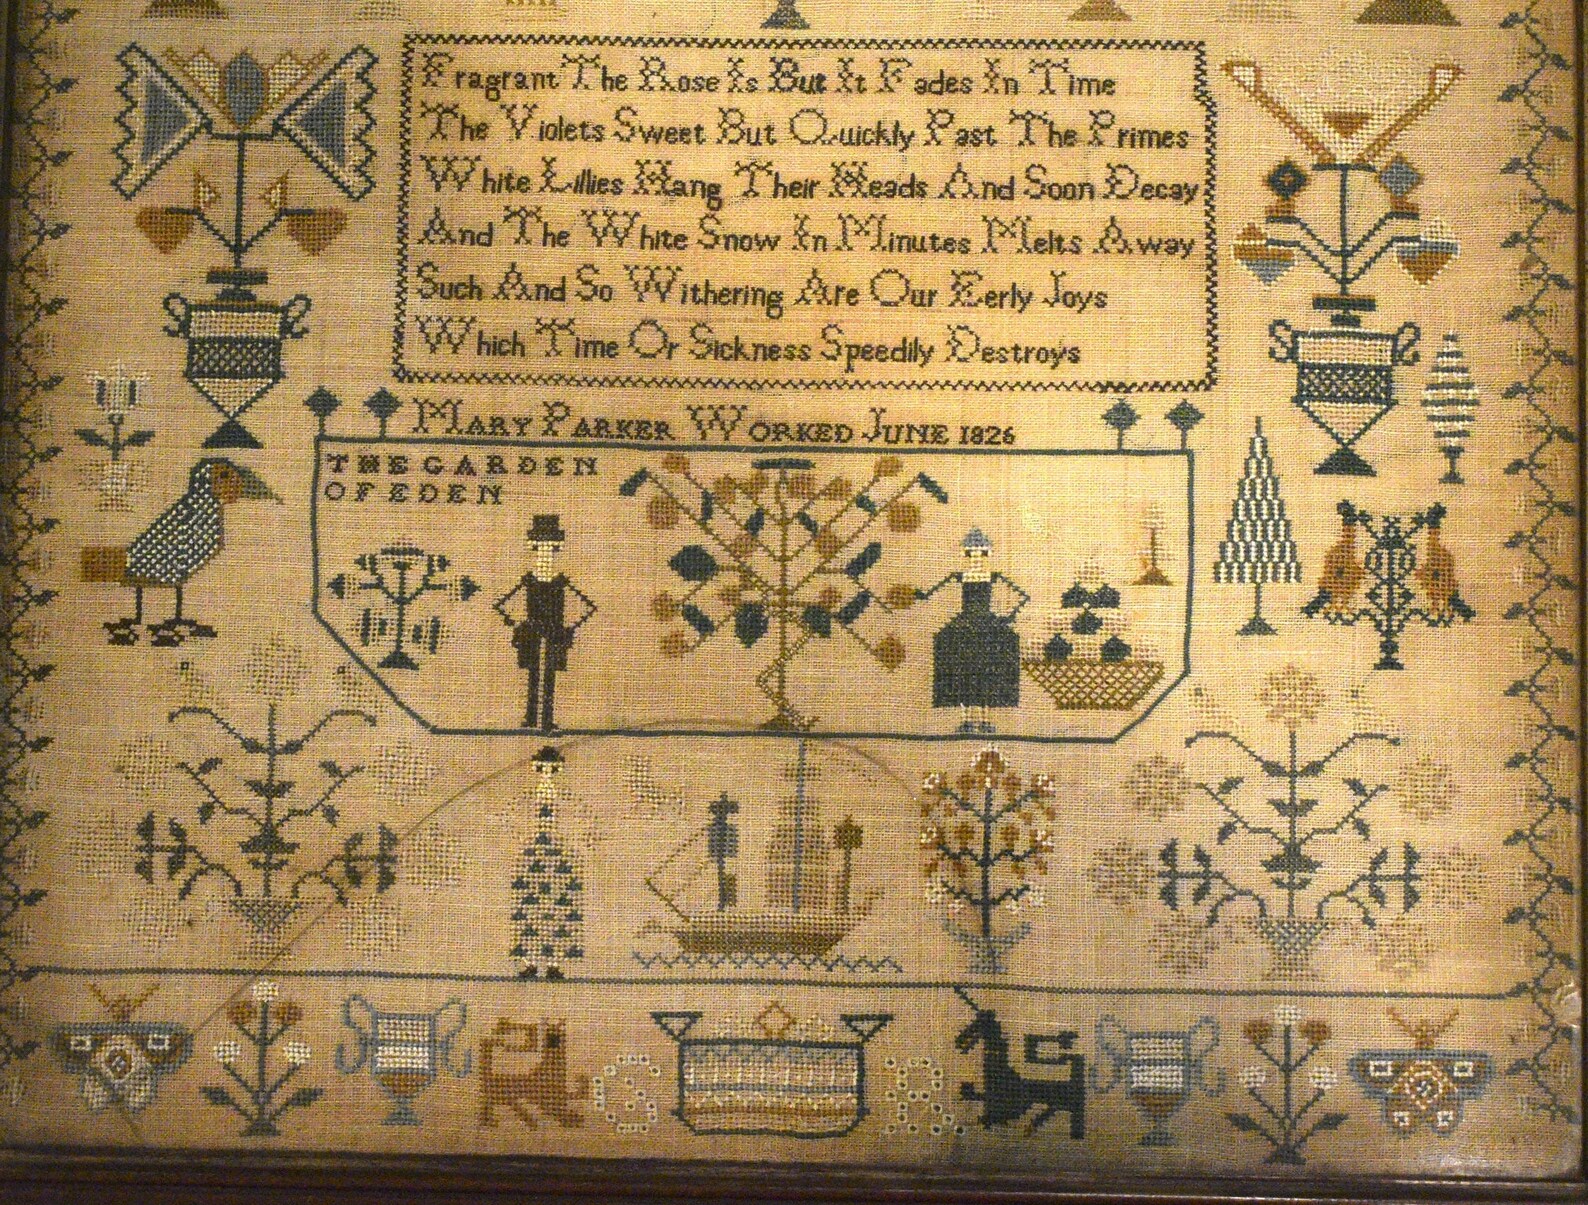 Fragrant The Rose Is But It Fades In Time
The Violets Sweet But Quickly Past The Primes
White Lillies Hang Their Heads And Soon Decay
And The White Snow In Minutes Melts Away
Such And So Withering Are Our Eerly Joys
Which Time Or Sickness Speedily Destroys
MARY PARKER WORKED JUNE 1826
THE GARDEN
OF EDEN
G R